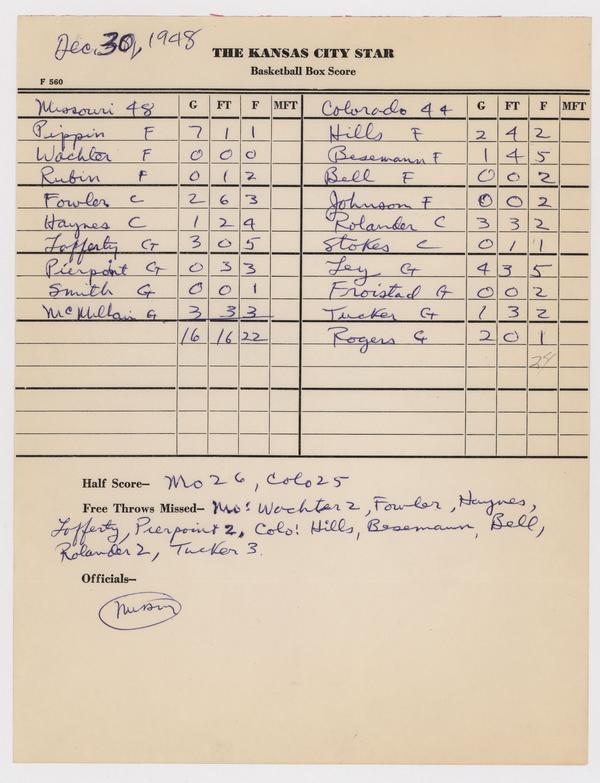 Dec. 30, 1948
THE KANSAS CITY STAR
Basketball Box Score
F 560
Missouri 48 G FT F MFT Colorado 44 G FT F MFT
Pippin F 7 1 1 Hills F 2 4 2
Wachter F 0 0 0 Besemann F 1 4 5
Rubin F 0 1 2 Bell F 0 0 2
Fowler C 2 6 3 Johnson F 0 0 2
Haynes C 1 2 4 Rolander C 3 3 2
Lafferty G 3 0 5 Stokes C 0 1 1
Pierpoint G 0 3 3 Ley G 4 3 5
Smith G 0 0 1 Froistad G 0 0 2
McMillan G 3 3 3 Tucker G 1 3 2
16 16 22 Rogers G 2 0 1
24
Half Score– Mo 26, Colo 25
Free Throws Missed– Mo: Wachter 2, Fowler, Haynes,
Lafferty, Pierpoint 2, Colo: Hills, Besemann, Bell,
Rolander 2, Tucker 3.
Officials–